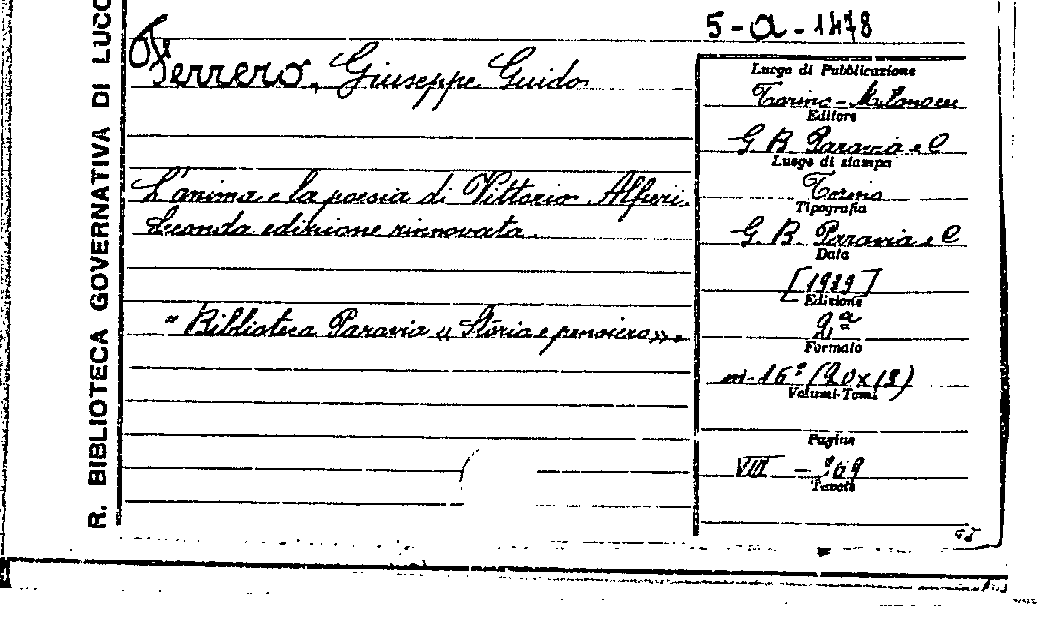 R. BIBLIOTECA GOVERNATIVA DI LUCC
5-a-1478
Ferrero, Giuseppe Guido
L'anima e la poesia di Vittorio Alfieri.
Seconda edizione rinnovata.
"Biblioteca Paravia « Storia e pensiero».
Luogo di Pubblicazione
Torino - Milano ecc
Editore
G. B. Paravia e C
Luogo di stampa
Torino
Tipografia
G. B. Paravia e C
Data
[1939]
Edizione
2ª
Formato
in-16° (20x13)
Volumi-Tomi
Pagine
VIII -
Tavole